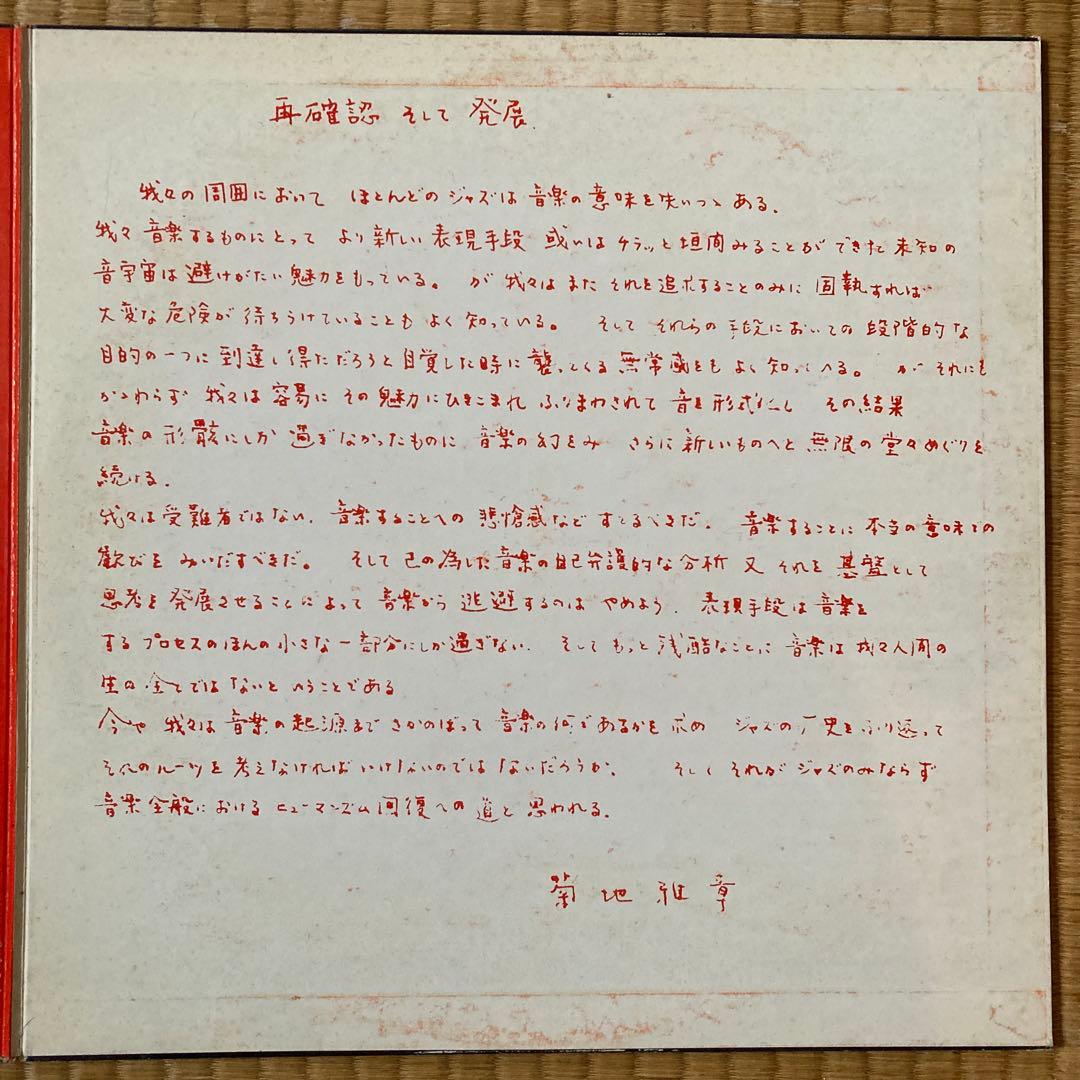 再確認 そして 発展
我々の周囲において ほとんどのジャズは音楽の意味を失いつゝある。
我々 音楽するものにとって より新しい表現手段 或いはチラッと垣間みることができた未知の
音宇宙は避けがたい魅力をもっている。 が 我々はまた それを追求することのみに固執すれば
大変な危険が待ちうけていることもよく知っている。 そして それらの手段においての段階的な
目的の一つに到達し得ただろうと自覚した時に襲ってくる無常感をもよく知っている。 が それにも
かゝわらず 我々は容易にその魅力にひきこまれ ふりまわされて 音を形式化し その結果
音楽の形骸にしか過ぎなかったものに 音楽の幻をみ さらに新しいものへと無限の堂々めぐりを
続ける.
我々は受難者ではない. 音楽することへの悲愴感などすてるべきだ。 音楽することに本当の意味での
歓びを みいだすべきだ。 そして己の為した音楽の自己弁護的な分析 又 それを基盤として
思考を発展させることによって音楽から逃避するのは やめよう. 表現手段は音楽を
するプロセスのほんの小さな一部分にしか過ぎない. そしてもっと残酷なことに音楽は我々人間の
生の全てではないということである
今や 我々は音楽の起源までさかのぼって音楽の何であるかを求め ジャズの歴史をふり返って
そのルーツを考えなければいけないのではないだろうか. そして それがジャズのみならず
音楽全般における ヒューマニズム回復への道と思われる.
菊地雅章